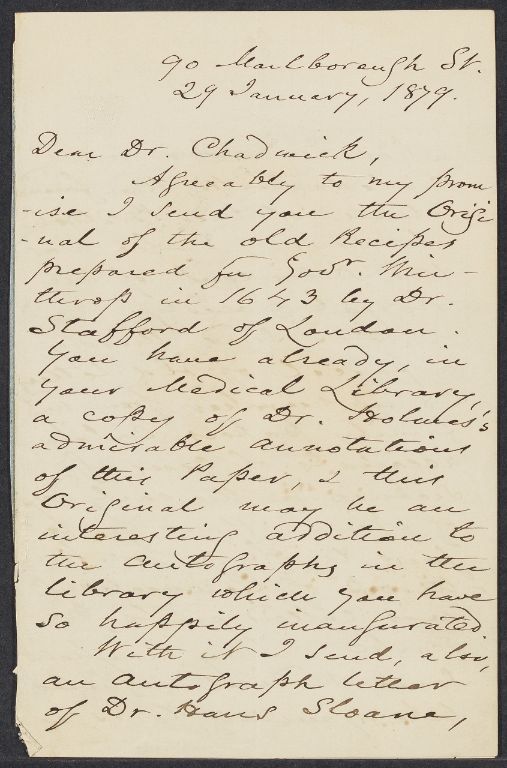 90 Marlborough St.
29 January, 1879.
Dear Dr. Chadwick,
Agreeably to my prom
-ise I send you the Origi
-nal of the old Recipes
prepared for Govr. Win-
throp in 1643 by Dr.
Stafford of London.
You have already, in
your Medical Library,
a copy of Dr. Holmes's
admirable annotations
of this Paper, & this
Original may be an
interesting addition to
the autographs in the
library which you have
so happily inaugurated.
With it I send, also,
an autograph letter
of Dr. Hans Sloane,